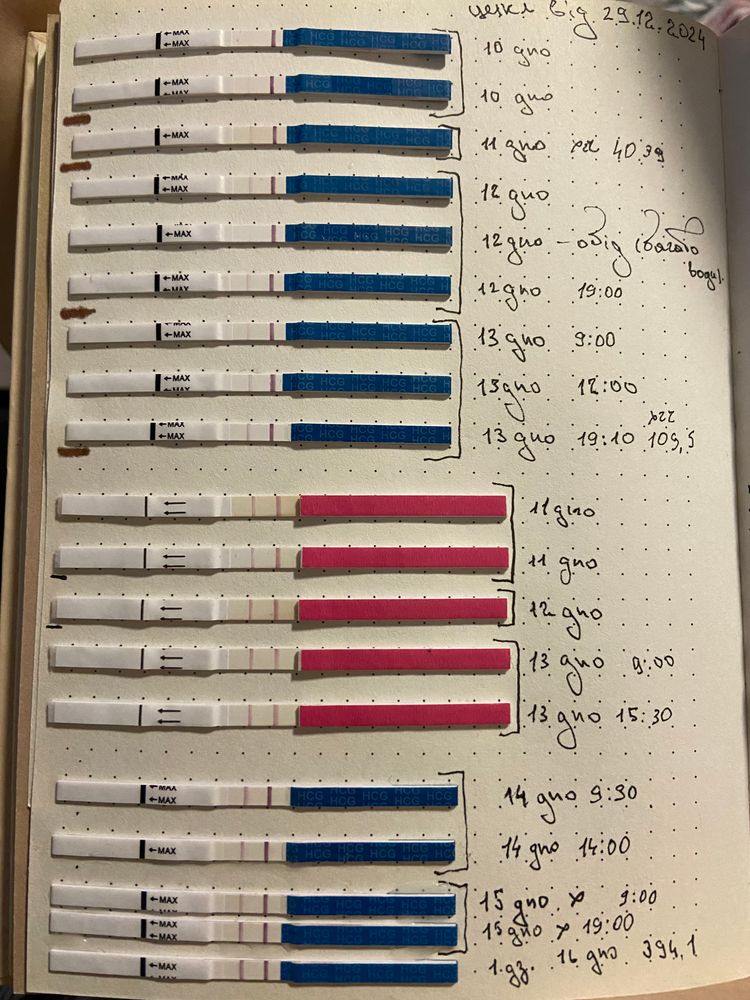 цикл від 29.12.2024
←MAX 10 дпо
←MAX HCG 10 дпо
←MAX HCG 11 дпо хгл 40.39
←MAX HCG 12 дпо
←MAX HCG 12 дпо - обід (багато
води).
←MAX HCG 12 дпо 19:00
←MAX HCG 13 дпо 9:00
←MAX HCG 13 дпо 12:00
хгл
←MAX HCG 13 дпо 19:10 109,5
11 дпо
11 дпо
12 дпо
13 дпо 9:00
13 дпо 15:30
←MAX HCG 14 дпо 9:30
←MAX HCG 14 дпо 14:00
←MAX HCG 15 дпо 9:00
←MAX HCG 15 дпо 19:00
←MAX HCG 16 дпо 394,1